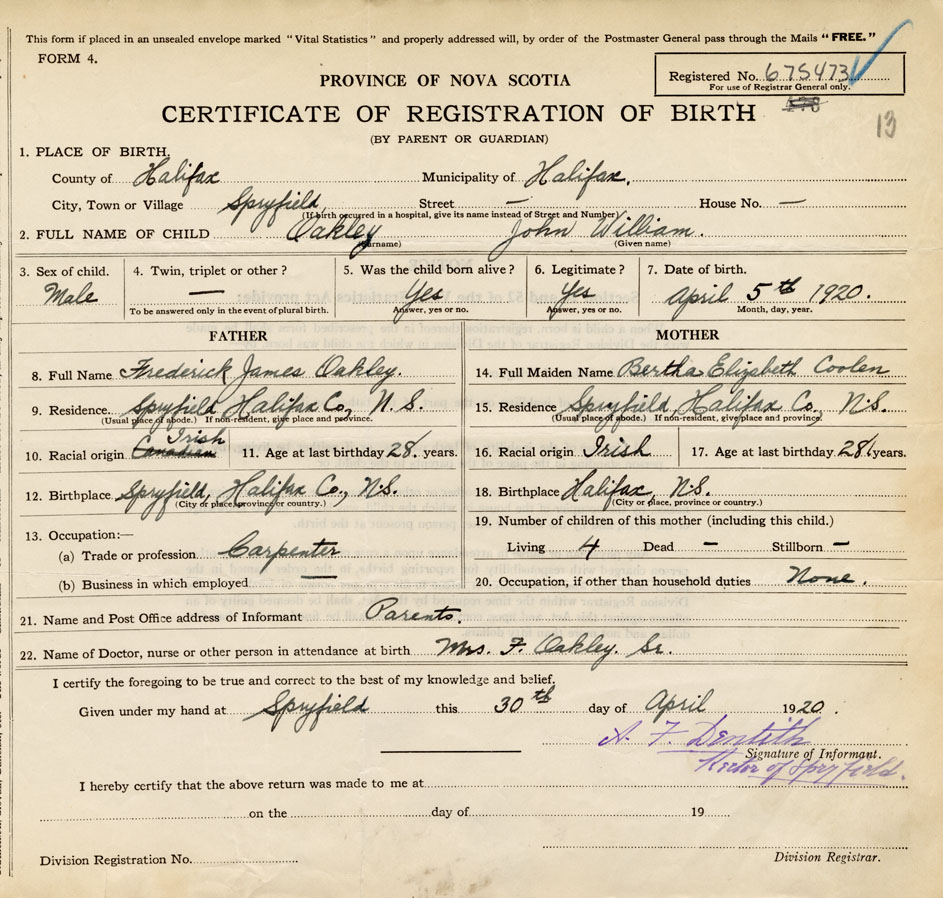 This form if placed in an unsealed envelope marked "Vital Statistics" and properly addressed will, by order of the Postmaster General pass through the Mails "FREE."
FORM 4.
PROVINCE OF NOVA SCOTIA
Registered No. 675473
For use of Registrar General only.
CERTIFICATE OF REGISTRATION OF BIRTH
13
(BY PARENT OR GUARDIAN)
1. PLACE OF BIRTH.
County of Halifax Municipality of Halifax.
City, Town or Village Spryfield Street — House No. —
(If birth occurred in a hospital, give its name instead of Street and Number)
2. FULL NAME OF CHILD Oakley John William.
(Surname) (Given name)
3. Sex of child. 4. Twin, triplet or other? 5. Was the child born alive? 6. Legitimate? 7. Date of birth.
Male — Yes Yes April 5th 1920.
To be answered only in the event of plural birth. Answer, yes or no. Answer, yes or no. Month, day, year.
FATHER MOTHER
8. Full Name Frederick James Oakley. 14. Full Maiden Name Bertha Elizabeth Coolen
9. Residence Spryfield Halifax Co., N.S. 15. Residence Spryfield, Halifax Co. N.S.
(Usual place of abode.) If non-resident, give place and province. (Usual place of abode.) If non-resident, give place and province.
Irish
10. Racial origin Canadian 11. Age at last birthday 28. years. 16. Racial origin Irish 17. Age at last birthday 28 years.
12. Birthplace Spryfield, Halifax Co., N.S. 18. Birthplace Halifax, N.S.
(City or place, province or country.) (City or place, province or country.)
13. Occupation:— 19. Number of children of this mother (including this child.)
(a) Trade or profession Carpenter Living 4 Dead — Stillborn —
(b) Business in which employed — 20. Occupation, if other than household duties None.
21. Name and Post Office address of Informant Parents.
22. Name of Doctor, nurse or other person in attendance at birth Mrs. F. Oakley. Sr.
I certify the foregoing to be true and correct to the best of my knowledge and belief.
Given under my hand at Spryfield this 30th day of April 1920.
A. F. Dentith
Signature of Informant.
Rector of Spryfield.
I hereby certify that the above return was made to me at
on the day of 19
Division Registration No.
Division Registrar.